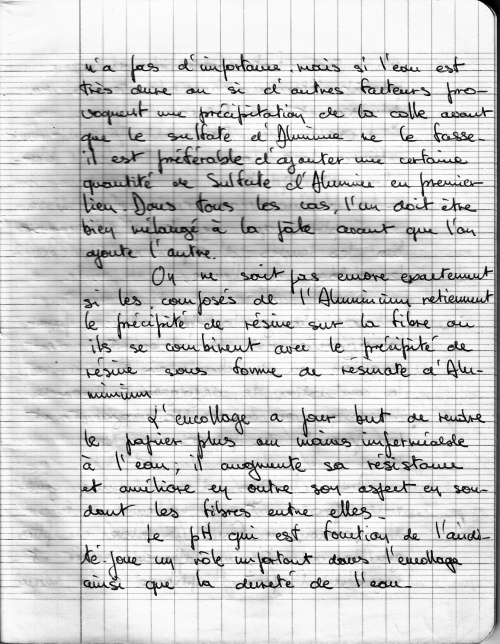 n'a pas d'importance. mais si l'eau est
très dure ou si d'autres facteurs pro-
voquent une précipitation de la colle avant
que le sulfate d'Alumine ne le fasse.
il est préférable d'ajouter une certaine
quantité de Sulfate d'Alumine en premier
lieu. Dans tous les cas, l'un doit être
bien mélangé à la pâte avant que l'on
ajoute l'autre.
On ne sait pas encore exactement
si les composés de l'Aluminium retiennent
le précipité de résine sur la fibre ou
ils se combinent avec le précipité de
résine sous forme de résinate d'Alu-
minium
L'encollage a pour but de rendre
le papier plus ou moins imperméable
à l'eau, il augmente sa résistance
et améliore en outre son aspect en sou-
dant les fibres entre elles.
Le pH qui est fonction de l'acidi-
té. joue un rôle important dans l'encollage
ainsi que la dureté de l'eau.